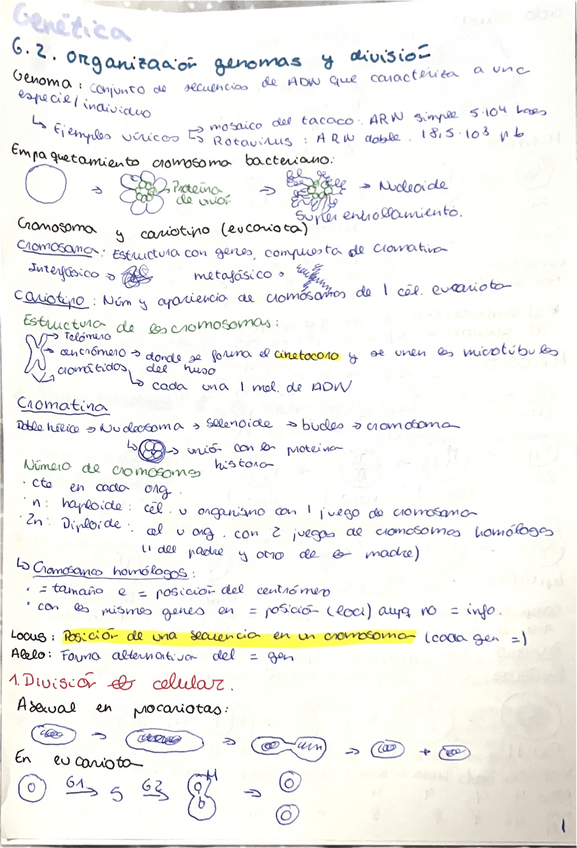 Genética
6.2. Organización genomas y división
Genoma: conjunto de secuencias de ADN que caracteriza a una
especie/individuo
↳ Ejemplos víricos → mosaico del tacaco: ARN simple 5·10⁴ bases
→ Rotavirus: ARN doble. 18,5·10³ pb
Empaquetamiento cromosoma bacteriano:
→ Proteína de unión → → Nucleoide
Superenrollamiento.
Cromosoma y cariotipo (eucariota)
Cromosoma: Estructura con genes, compuesta de cromatina
Interfásico → metafásico →
Cariotipo: Núm y apariencia de cromosomas de 1 cél. eucariota
Estructura de los cromosomas:
→ Telómero
→ centrómero → donde se forma el cinetocoro y se unen los microtúbulos
cromátidas del huso
↳ cada una 1 mol. de ADN
Cromatina
Doble hélice → Nucleosoma → Selenoide → bucles → cromosoma
↳ → unión con la proteína
histona
Número de cromosomas
· cte en cada org.
· n: haploide: cél. u organismo con 1 juego de cromosoma
· 2n: Diploide: cel u org. con 2 juegos de cromosomas homólogos
(1 del padre y otro de la madre)
↳ Cromosomas homólogos:
· = tamaño e = posición del centrómero
· con los mismos genes en = posición (loci) aunq no = info.
Locus: Posición de una secuencia en un cromosoma (cada gen =)
Alelo: Forma alternativa del = gen
1. División celular.
Asexual en procariotas:
→ → → +
En eucariota
G1 → S G2 → M →
1